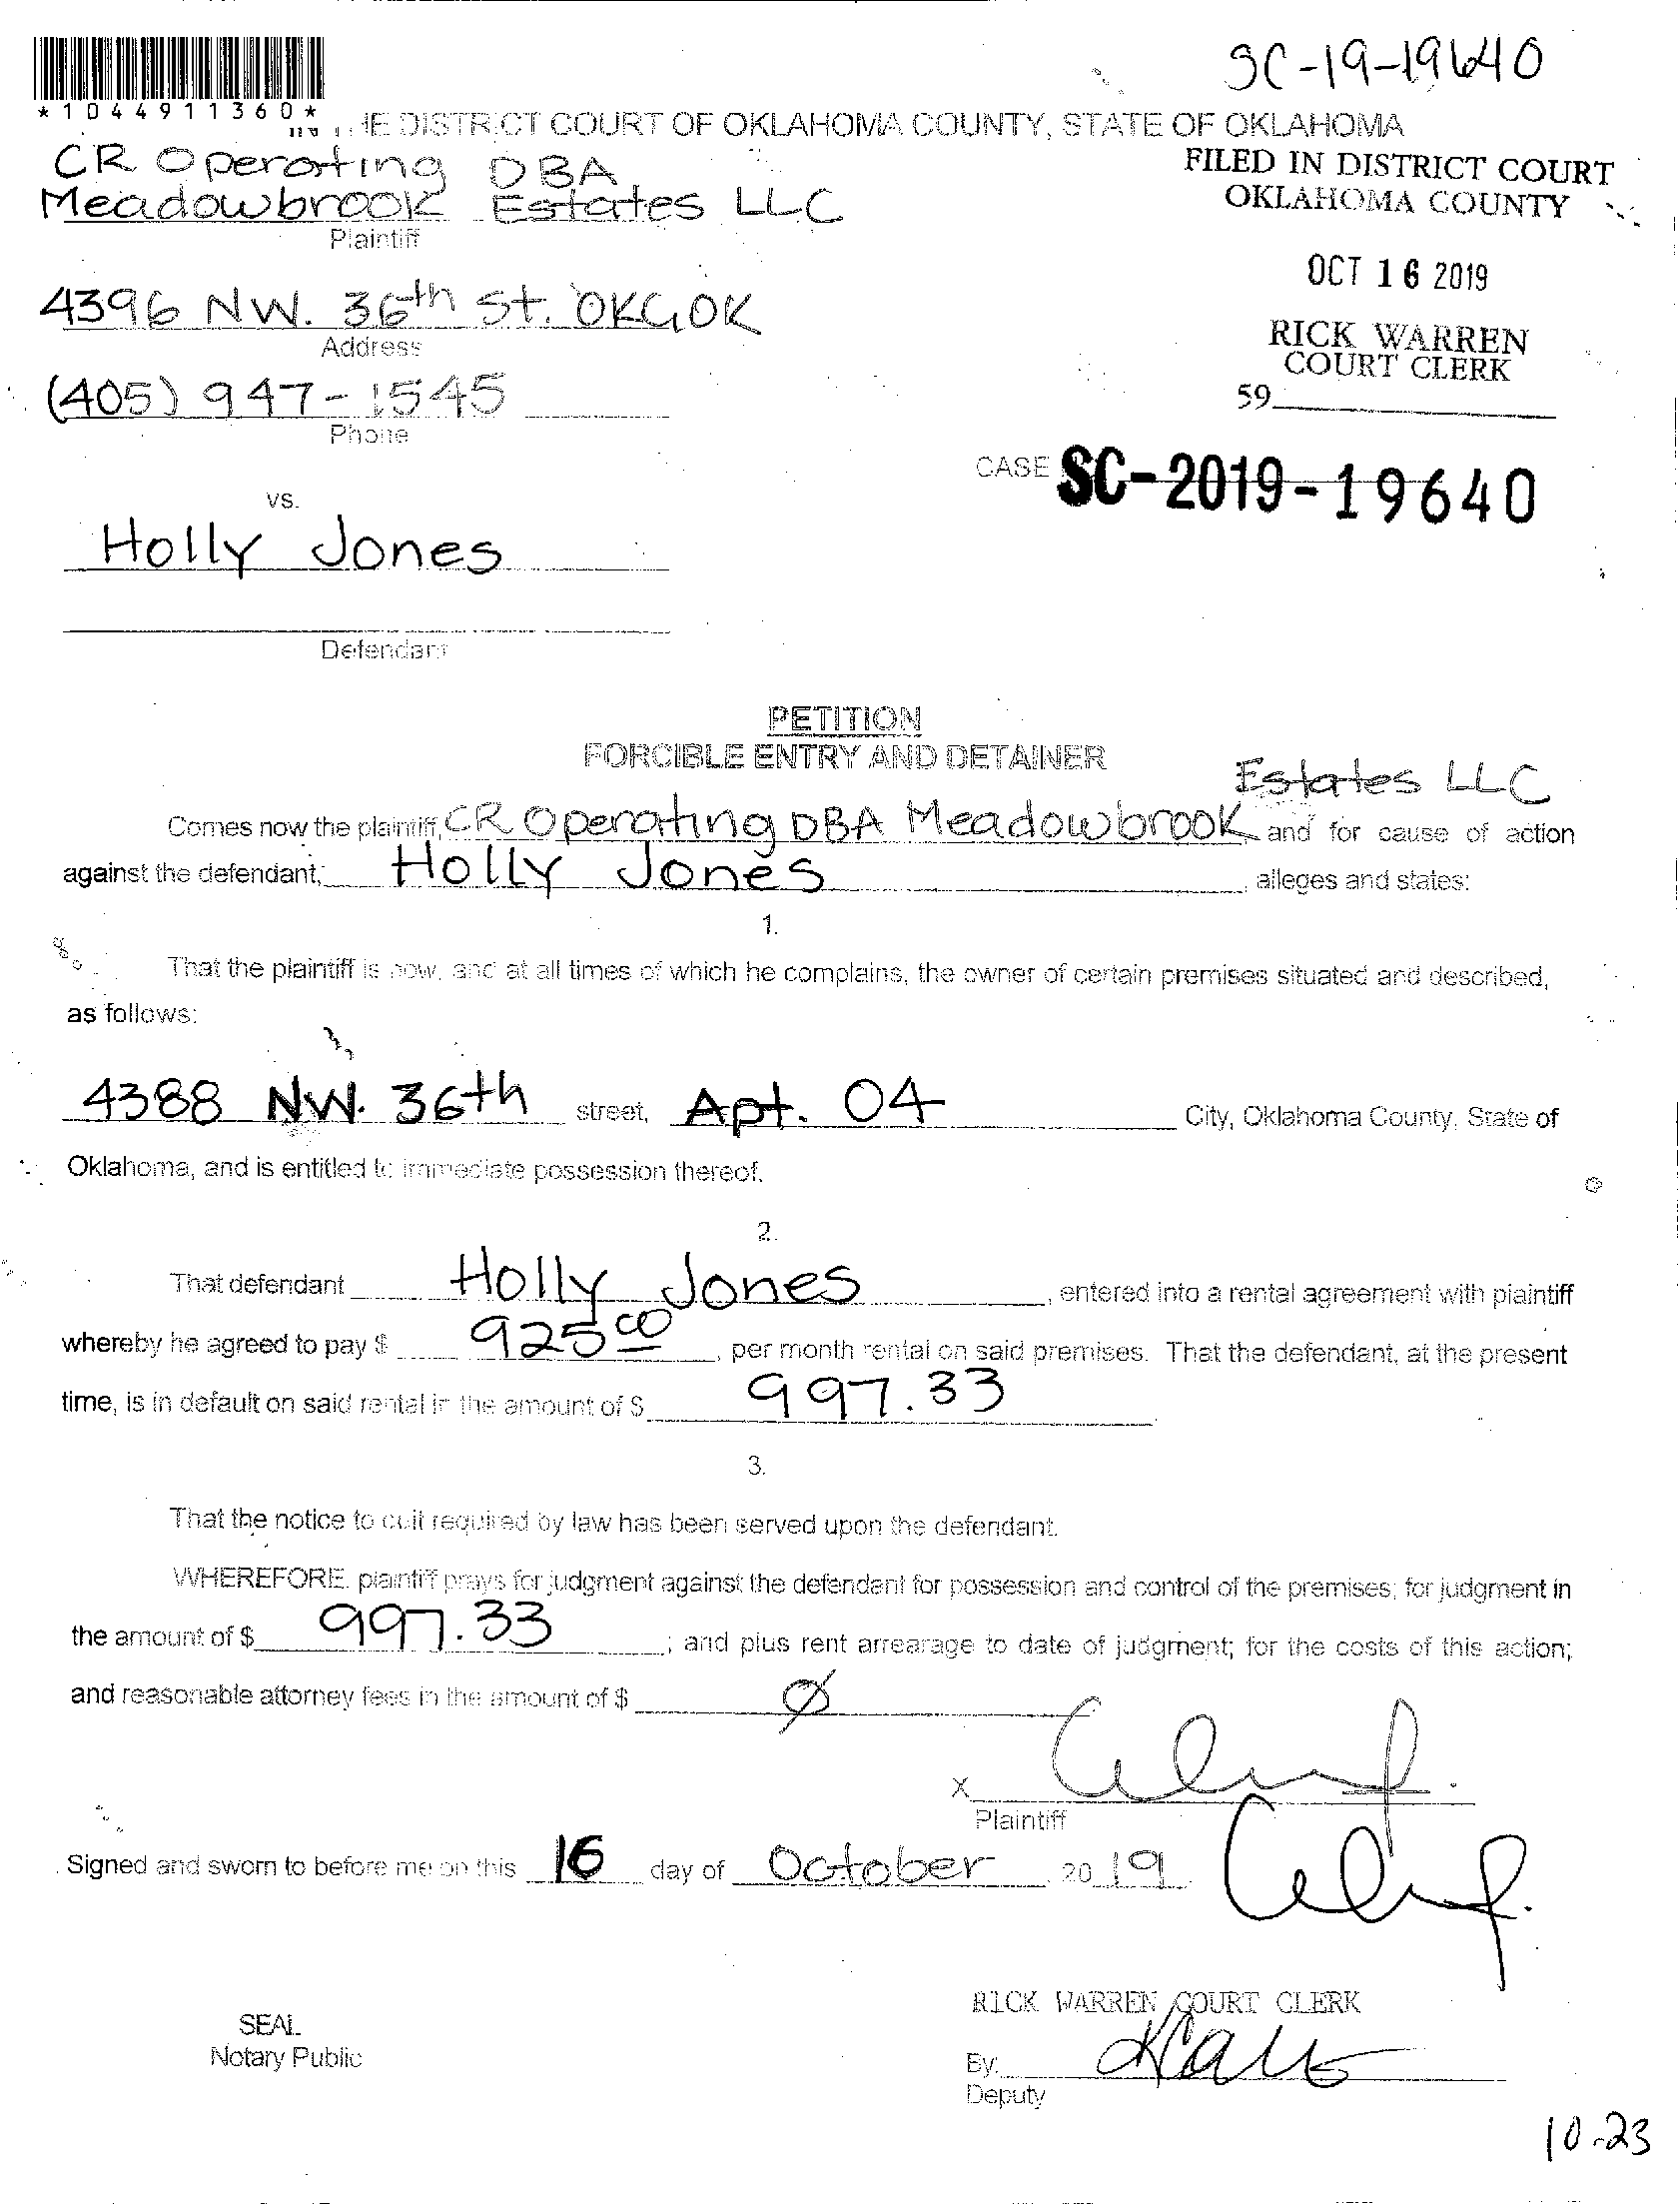 SC-19-19640
*1044911360*
IN THE DISTRICT COURT OF OKLAHOMA COUNTY, STATE OF OKLAHOMA
CR Operating DBA
Meadowbrook Estates LLC
Plaintiff
FILED IN DISTRICT COURT
OKLAHOMA COUNTY
OCT 16 2019
RICK WARREN
COURT CLERK
59
4396 NW. 36th St. OKC, OK
Address
(405) 947-1545
Phone
CASE SC-2019-19640
vs.
Holly Jones
Defendant
PETITION
FORCIBLE ENTRY AND DETAINER
Estates LLC
Comes now the plaintiff, CR Operating DBA Meadowbrook and for cause of action
against the defendant, Holly Jones, alleges and states:
1.
That the plaintiff is now, and at all times of which he complains, the owner of certain premises situated and described,
as follows:
4388 NW. 36th street, Apt. 04 City, Oklahoma County, State of
Oklahoma, and is entitled to immediate possession thereof.
2.
That defendant Holly Jones, entered into a rental agreement with plaintiff
whereby he agreed to pay $ 925.00, per month rental on said premises. That the defendant, at the present
time, is in default on said rental in the amount of $ 997.33
3.
That the notice to quit required by law has been served upon the defendant.
WHEREFORE, plaintiff prays for judgment against the defendant for possession and control of the premises; for judgment in
the amount of $ 997.33; and plus rent arrearage to date of judgment; for the costs of this action;
and reasonable attorney fees in the amount of $ Ø
X
Plaintiff
Signed and sworn to before me on this 16 day of October, 2019.
RICK WARREN COURT CLERK
SEAL
Notary Public
By:
Deputy
10-23